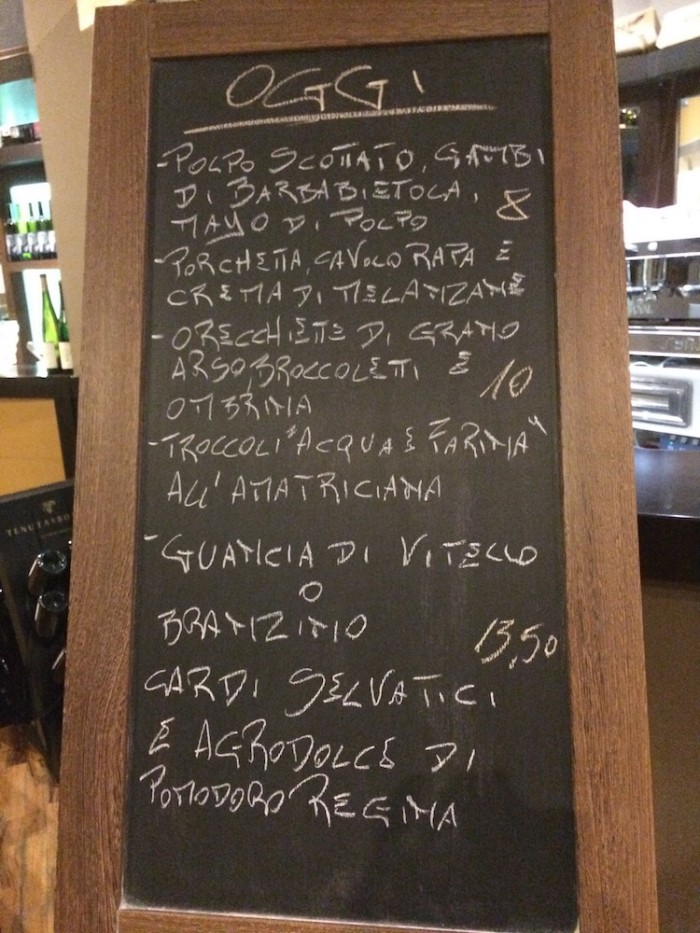 OGGI
- POLPO SCOTTATO, GAMBI
DI BARBABIETOLA,
MAYO DI POLPO 8
- PORCHETTA, CAVOLO RAPA E
CREMA DI MELANZANE
- ORECCHIETTE DI GRANO
ARSO, BROCCOLETTI E
OMBRINA 10
- TROCCOLI "ACQUA E FARINA"
ALL'AMATRICIANA
- GUANCIA DI VITELLO
O
BRANZINO 13,50
CARDI SELVATICI
E AGRODOLCE DI
POMODORO REGINA